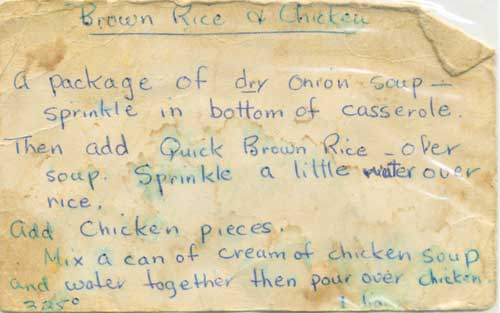 Brown Rice & Chicken
A package of dry onion soup –
sprinkle in bottom of casserole.
Then add Quick Brown Rice – over
soup. Sprinkle a little water over
rice.
Add Chicken pieces.
Mix a can of cream of chicken soup
and water together then pour over chicken
325° 1 hour